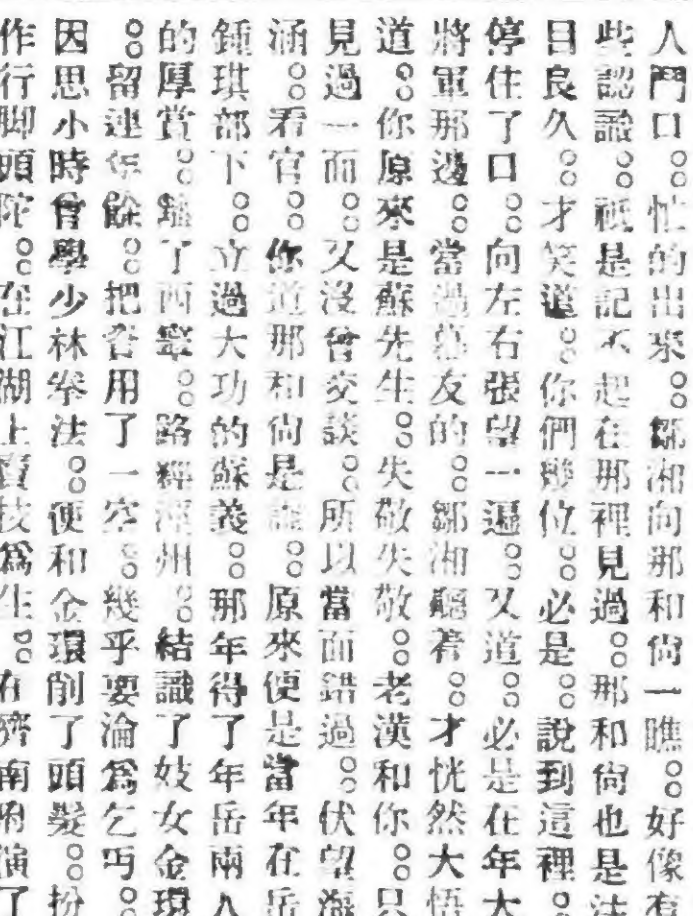 人門口。忙的出來。鄒湘向那和尙一瞧。好像有
些認識。祇是記不起在那裡見過。那和尙也是法
目良久。才笑道。你們幾位。必是。說到這裡。
停住了口。向左右張望一遍。又道。必是在年大
將軍那邊。當過幕友的。鄒湘聽着。才恍然大悟
道。你原來是蘇先生。失敬失敬。老漢和你。只
見過一面。又沒曾交談。所以當面錯過。伏望海
涵。看官。你道那和尙是誰。原來便是當年在岳
鍾琪部下。立過大功的蘇義。那年得了年岳兩人
的厚賞。離了西寧。路經涇州。結識了妓女金環
。留連年餘。把看用了一空。幾乎要淪爲乞丐。
因思小時曾學少林拳法。便和金環削了頭髮。扮
作行脚頭陀。在江湖上賣技爲生。在濟南府演了